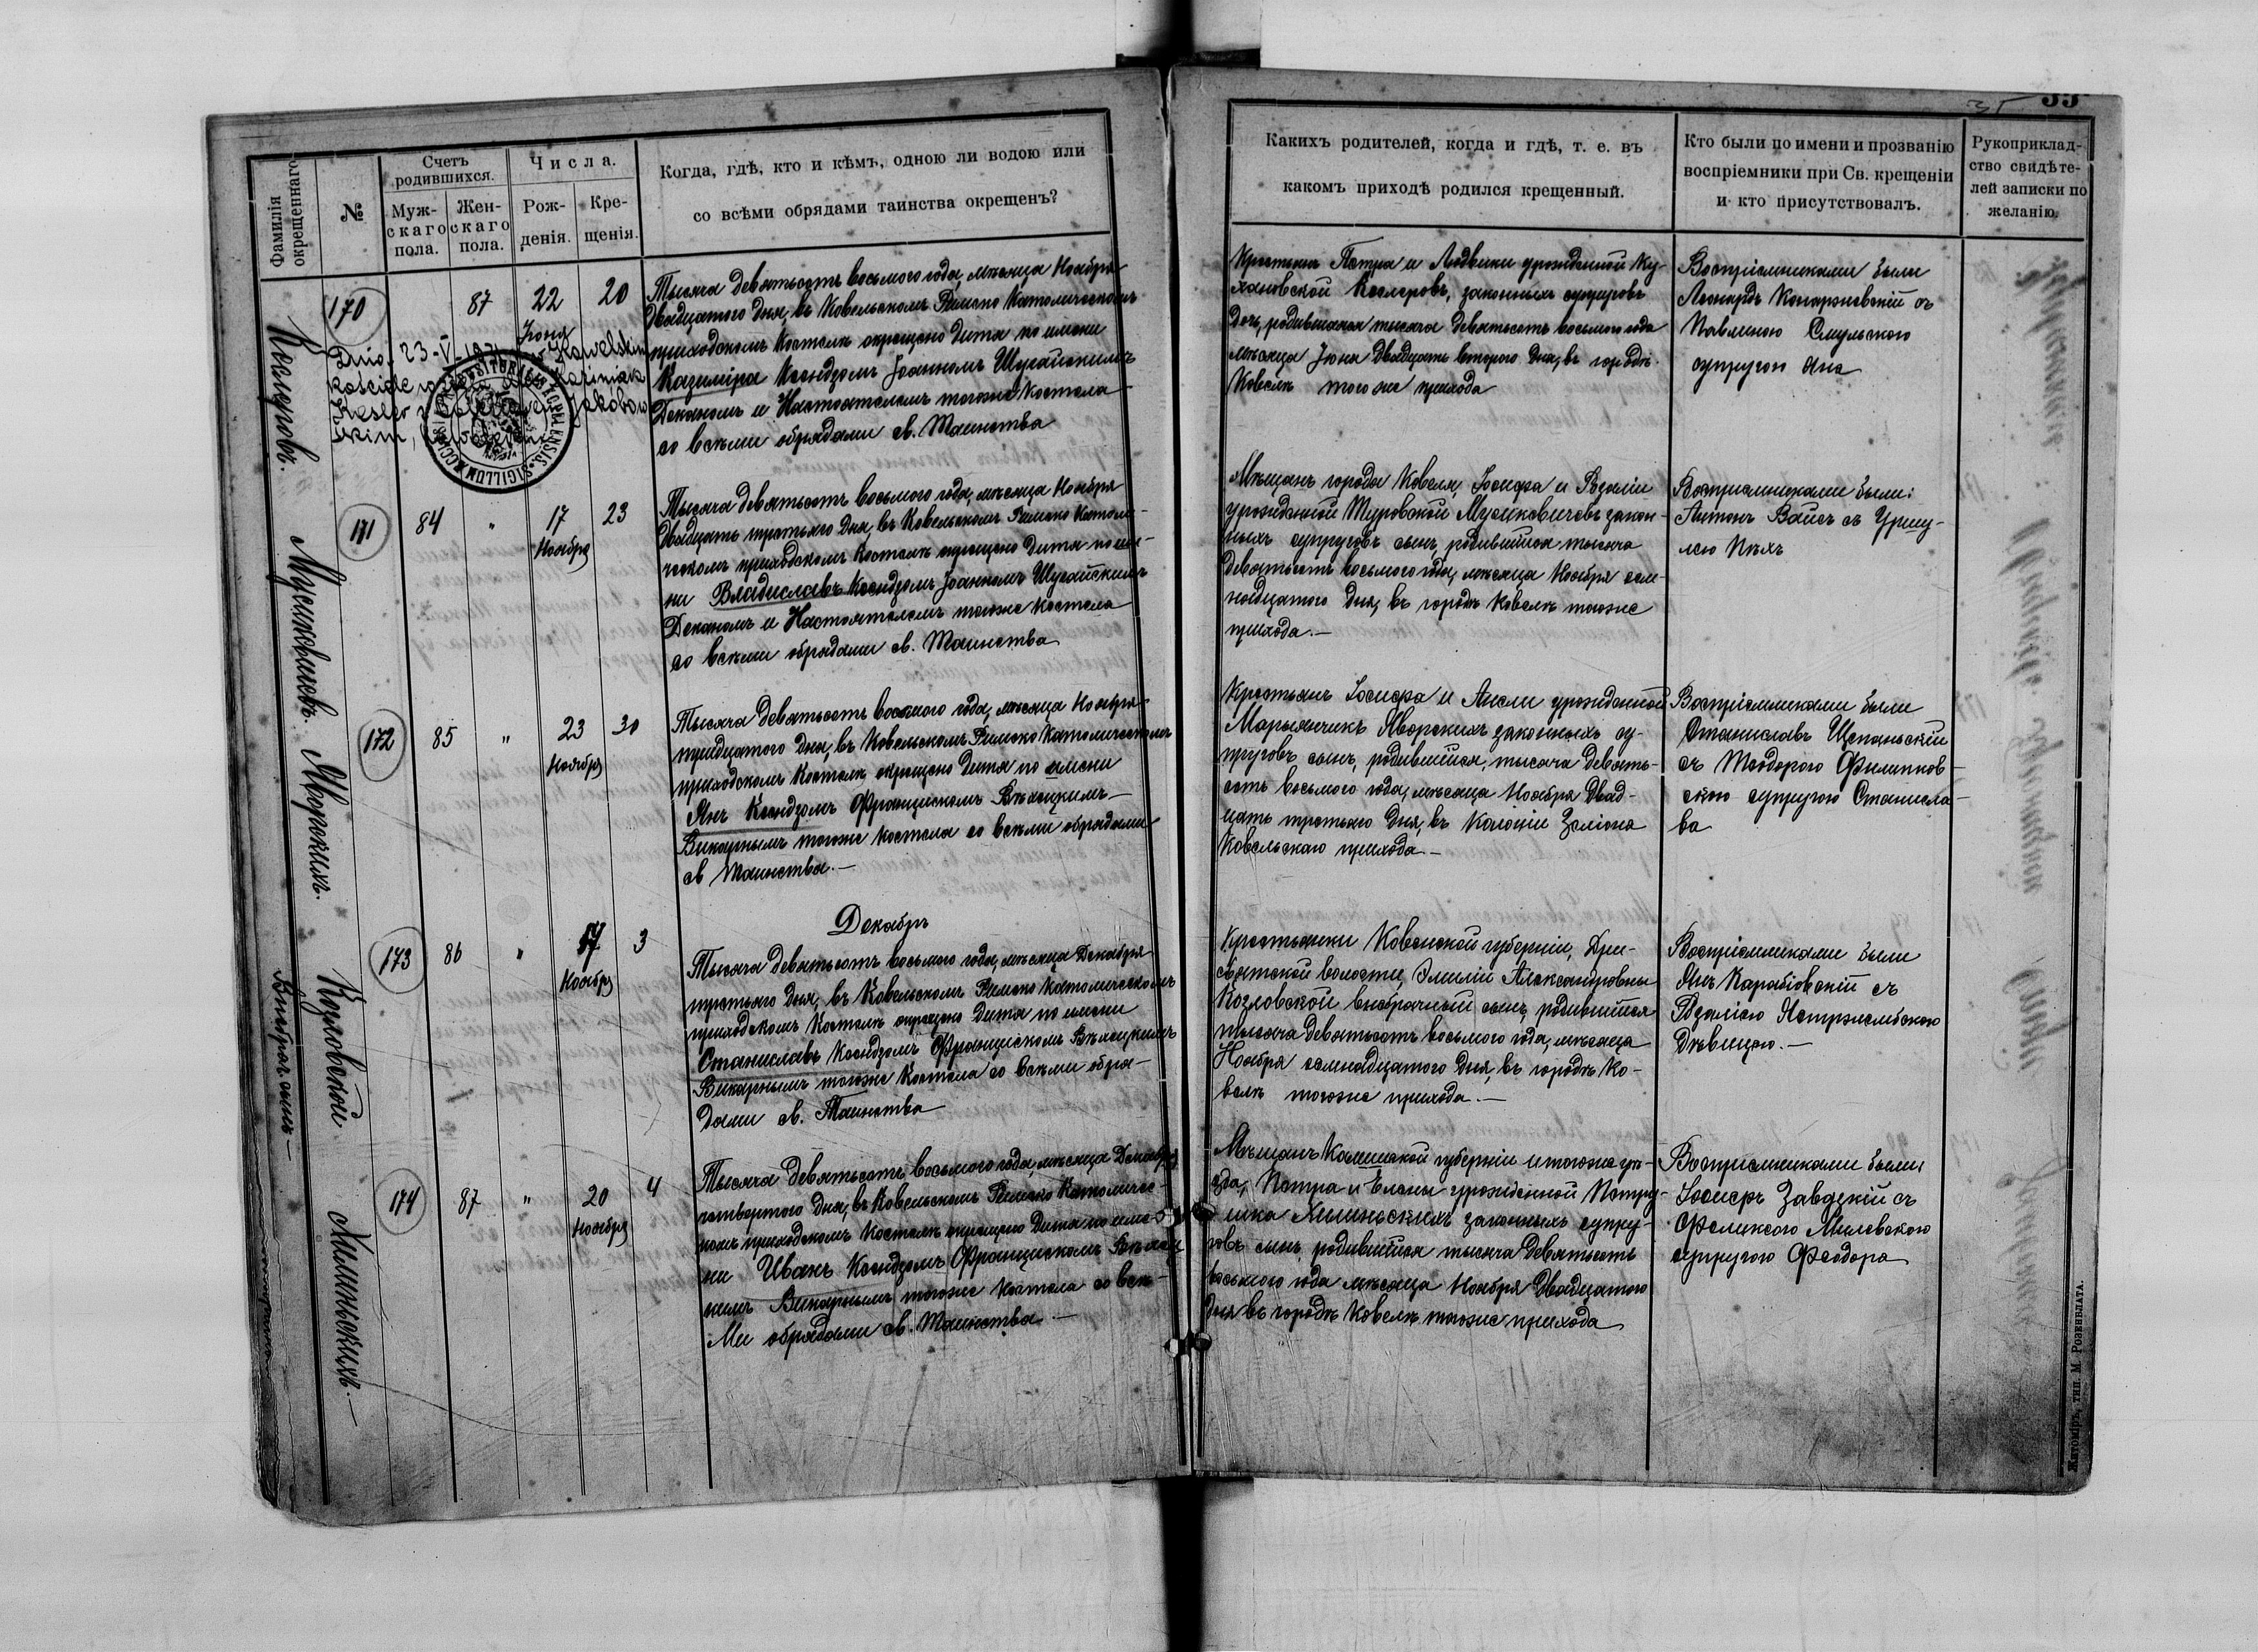 35
Фамилія
окрещеннаго
№
Счетъ
родившихся.
Муж-
скаго
пола.
Жен-
скаго
пола.
Числа.
Рож-
денія.
Кре-
щенія.
Когда, гдѣ, кто и кѣмъ, одною ли водою или
со всѣми обрядами таинства окрещенъ?
Какихъ родителей, когда и гдѣ, т. е. въ
какомъ приходѣ родился крещенный.
Кто были по имени и прозванію
воспріемники при Св. крещеніи
и кто присутствовалъ.
Рукоприклад-
ство свидѣте-
лей записки по
желанію.
170
87
22
Іюня
20
Dnia 23-V-
kościele
SIGILLUM
Тысяча девятьсотъ восьмого года, мѣсяца Ноября
двадцатого дня, въ Ковельскомъ Римско Католическомъ
приходскомъ Костелѣ окрещено дитя по имени
Казиміра Ксендзомъ Іоанномъ Шугайскимъ
Деканомъ и Настоятелемъ тогоже Костела
со всѣми обрядами св. Таинства
Крестьянъ Петра и Людвики урожденной Ку-
хановской Кеслеровъ, законныхъ супруговъ
дочь, родившаяся тысяча девятьсотъ восьмого года
мѣсяца Іюня двадцать второго дня, въ городѣ
Ковелѣ тогоже прихода
Воспріемниками были
Леонардъ съ
Павлиною Смульскою
супругою Яна
Мусиковичевъ.
171
84
"
17
Ноября
23
Тысяча девятьсотъ восьмого года, мѣсяца Ноября
двадцать третьяго дня, въ Ковельскомъ Римско Католи-
ческомъ приходскомъ Костелѣ окрещено дитя по име-
ни Владиславъ Ксендзомъ Іоанномъ Шугайскимъ
Деканомъ и Настоятелемъ тогоже Костела
со всѣми обрядами св. Таинства
Мѣщанъ города Ковеля, Іосифа и Розаліи
урожденной Туровской Мусиковичевъ закон-
ныхъ супруговъ сынъ, родившійся тысяча
девятьсотъ восьмого года, мѣсяца Ноября сем-
надцатого дня, въ городѣ Ковелѣ тогоже
прихода.—
Воспріемниками были:
Антонъ Вайсъ съ Уршу-
лею
Яворскихъ.
172
85
"
23
Ноября
30
Тысяча девятьсотъ восьмого года, мѣсяца Ноября
тридцатого дня, въ Ковельскомъ Римско Католическомъ
приходскомъ Костелѣ окрещено дитя по имени
Янъ Ксендзомъ Францискомъ Бѣлецкимъ—
Викарнымъ тогоже Костела со всѣми обрядами
св Таинства.—
Крестьянъ Іосифа и урожденной
Марьянчикъ Яворскихъ законныхъ су-
пруговъ сынъ, родившійся, тысяча девять-
сотъ восьмого года, мѣсяца Ноября двад-
цать третьяго дня, въ Колоніи Зелiона
Ковельскаго прихода.—
Воспріемниками были
Станиславъ
съ Теодорою Филипков-
скою супругою Станисла-
ва
Декабрь
Козловской
Внебрач. сынъ—
173
86
"
17
Ноября
3
Тысяча девятьсотъ восьмого года, мѣсяца Декабря
третьяго дня, въ Ковельскомъ Римско Католическомъ
приходскомъ Костелѣ окрещено дитя по имени
Станиславъ Ксендзомъ Францискомъ Бѣлецкимъ
Викарнымъ тогоже Костела со всѣми обря-
дами св. Таинства
Крестьянки Ковенской губерніи, Дри-
святской волости, Эмиліи Александровны
Козловской внебрачный сынъ, родившійся
тысяча девятьсотъ восьмого года, мѣсяца
Ноября семнадцатого дня, въ городѣ Ко-
велѣ тогоже прихода.—
Воспріемниками были
Янъ Карабіовскій съ
Розаліею Ястржембскою
Дѣвицею.—
Хилинскихъ.—
174
87
"
20
Ноября
4
Тысяча девятьсотъ восьмого года, мѣсяца Декабря
четвертого дня, въ Ковельскомъ Римско Католичес-
комъ приходскомъ Костелѣ окрещено дитя по име-
ни Иванъ Ксендзомъ Францискомъ Бѣлец
кимъ Викарнымъ тогоже Костела со всѣ-
ми обрядами св. Таинства.—
Мѣщанъ губерніи и тогоже уѣ-
зда, Петра и Елены урожденной Петру-
шка Хилинскихъ законныхъ супру-
говъ сынъ, родившійся тысяча девятьсотъ
восьмого года мѣсяца Ноября двадцатого
дня въ городѣ Ковелѣ тогоже прихода
Воспріемниками были
Іосифъ Завадскій съ
Феликсою Милевскою
супругою Феодора
Житоміръ, тип. М. Розенблата.